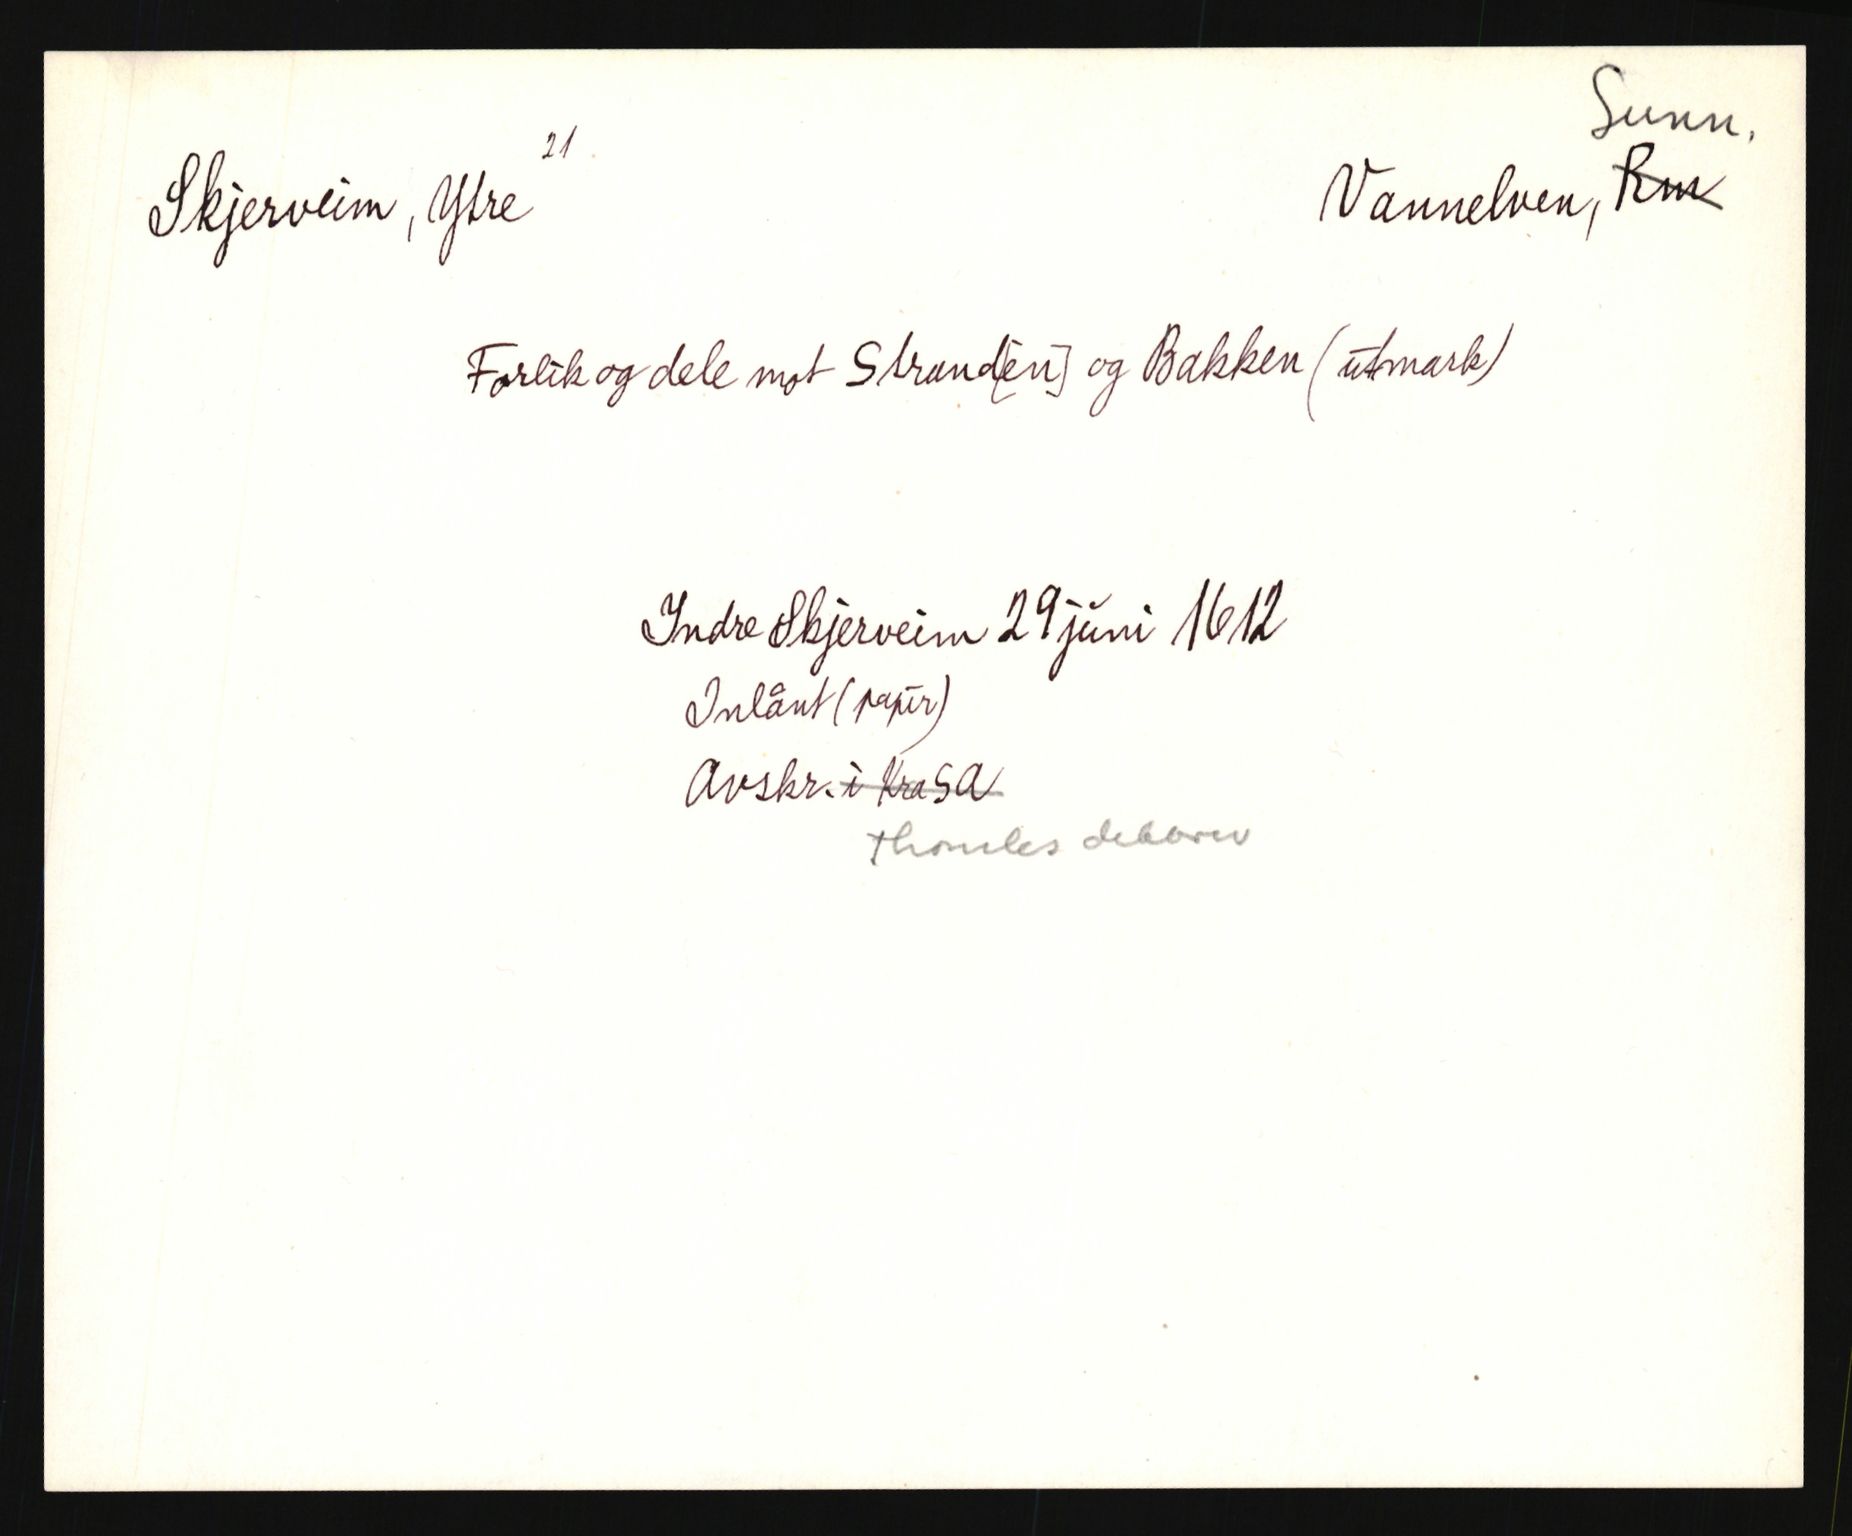 Sunn.
Skjerveim, Ytre 21
Vannelven, Rm
Forlik og dele mot Strand[en] og Bakken (utmark)
Indre Skjerveim 29 juni 1612
Inlånt (papir)
Avskr. i Kra SA